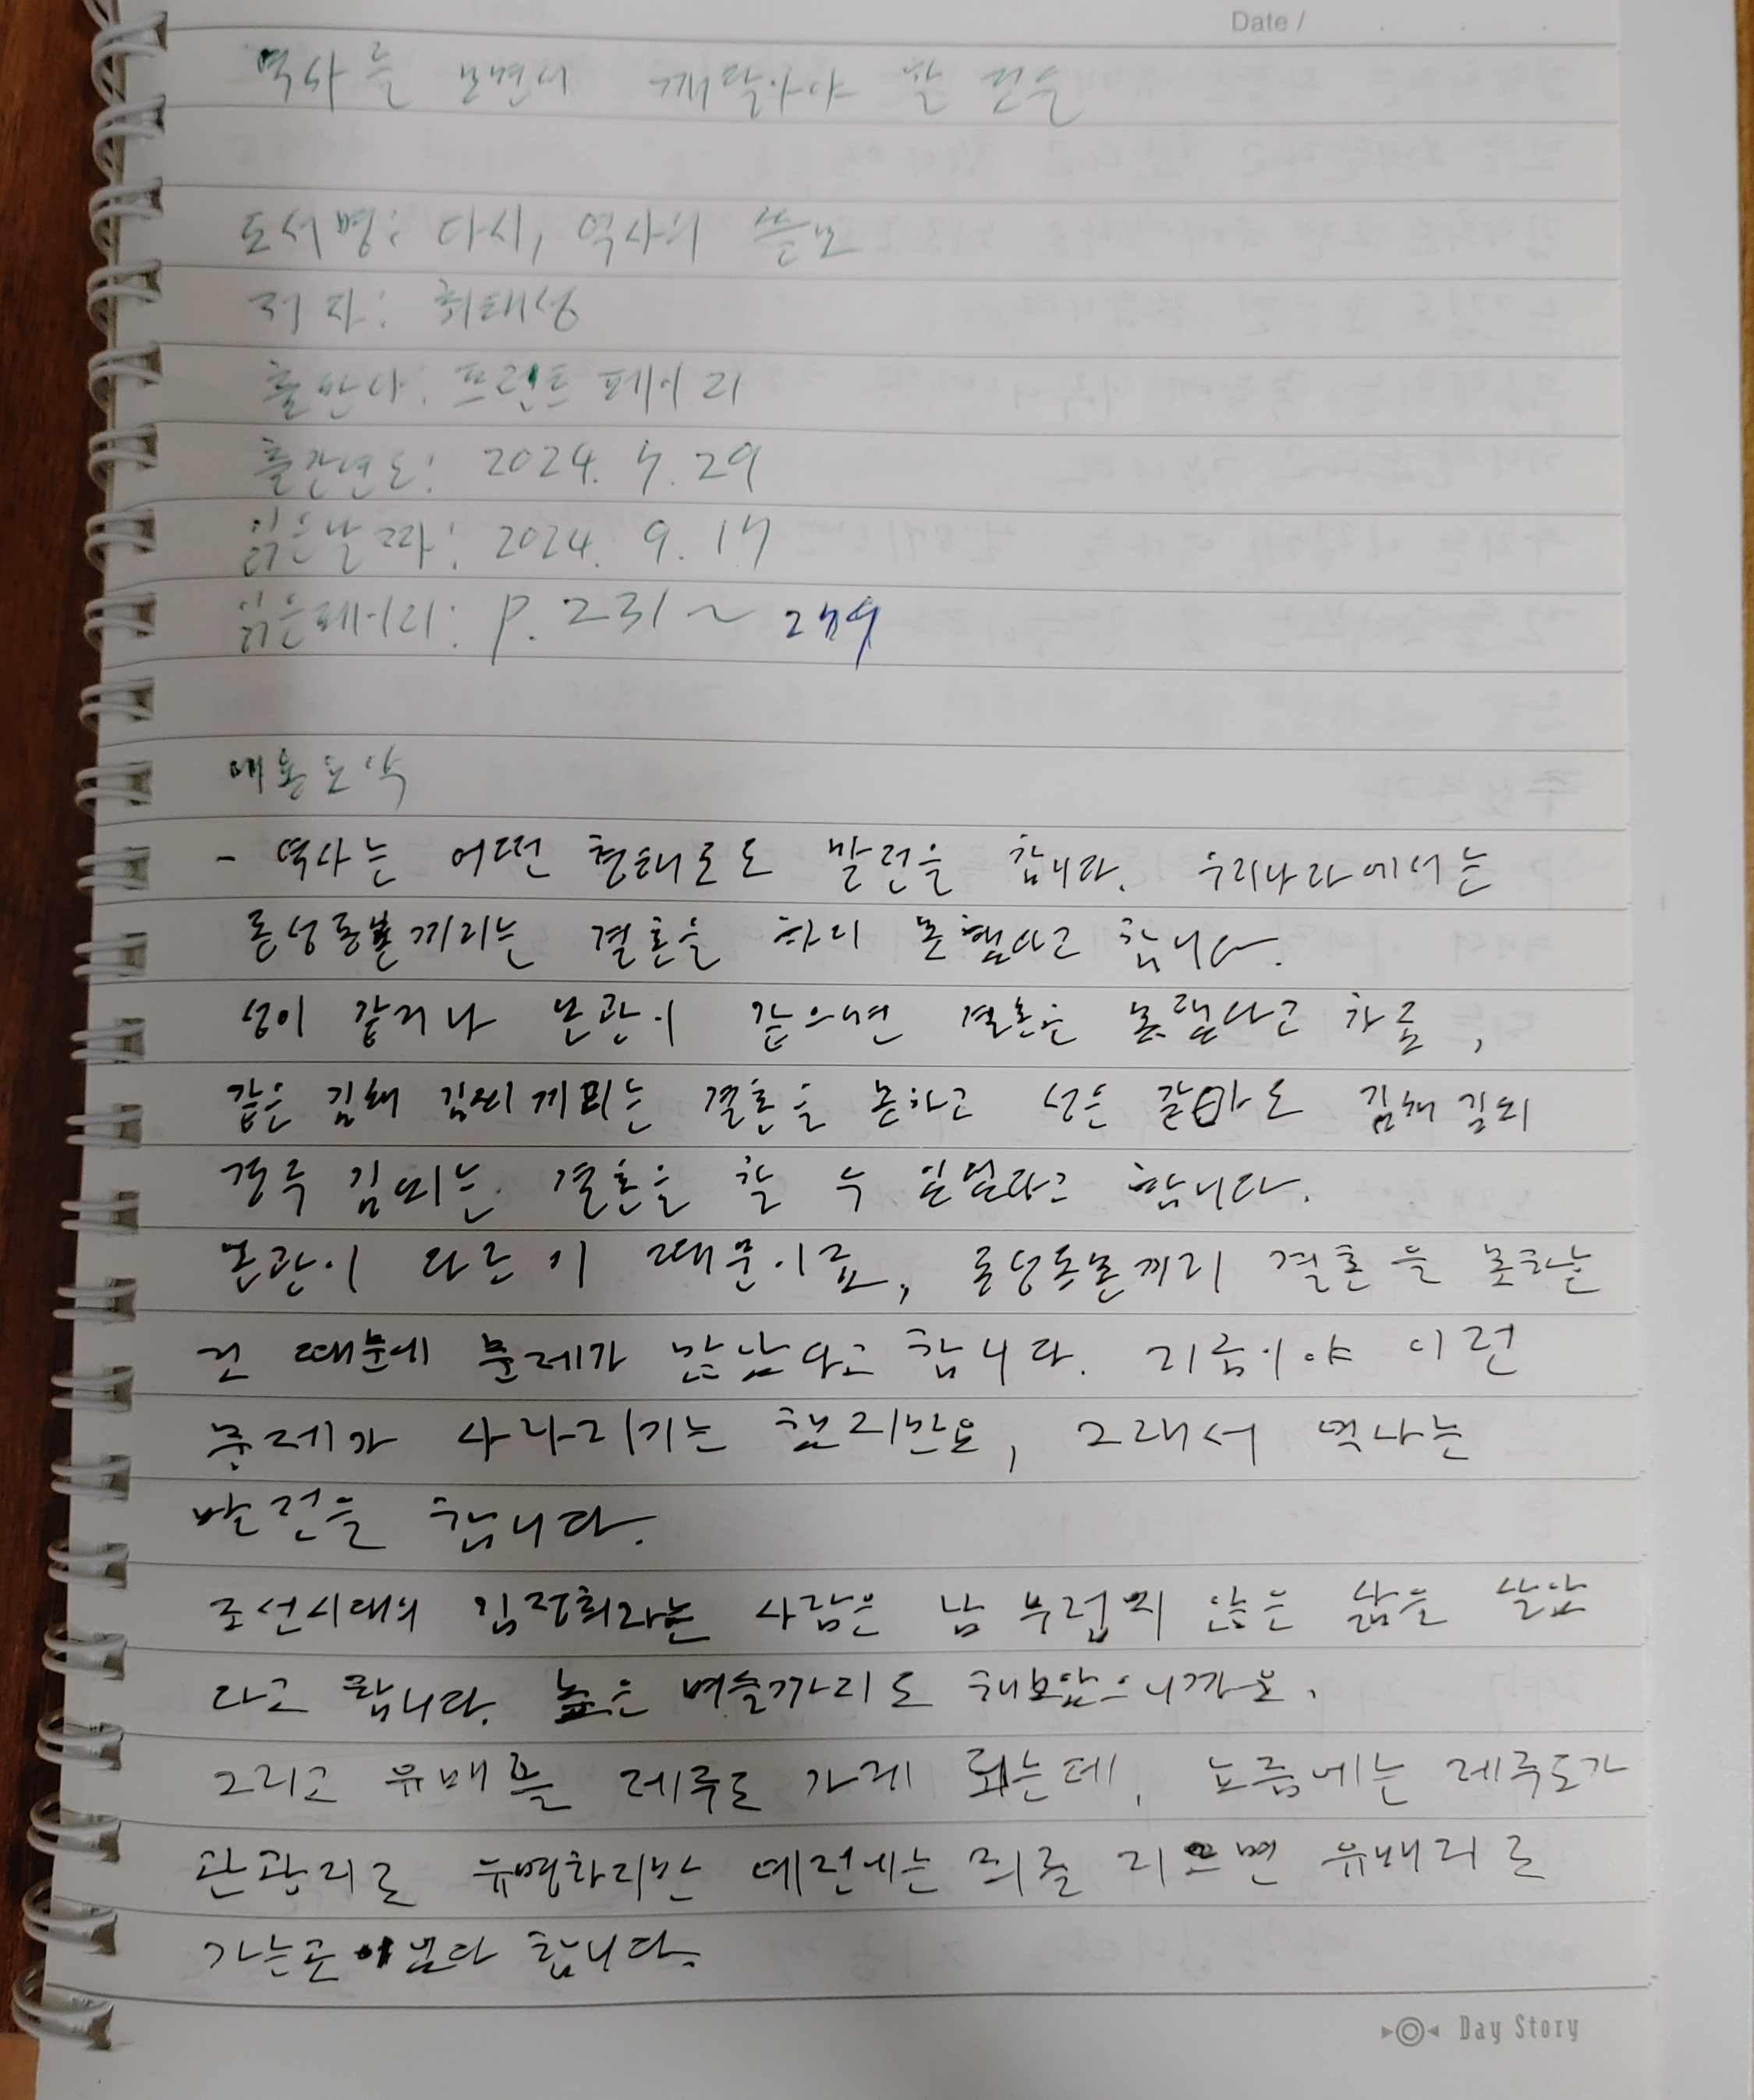 Date /
역사를 보면서 깨달아야 할 것을
도서명: 다시, 역사의 쓸모
저자: 최태성
출판사: 프런트페이지
출간년도: 2024. 7. 29
읽은날짜: 2024. 9. 17
읽은페이지: p. 231 ~ 279
내용요약
- 역사는 어떤 형태로도 발전을 합니다. 우리나라에서는
동성동본끼리는 결혼을 하지 못했다고 합니다.
성이 같거나 본관이 같으면 결혼은 못했다고 하죠,
같은 김해 김씨끼리는 결혼을 못하고 성은 같아도 김해 김씨
경주 김씨는 결혼을 할 수 있었다고 합니다.
본관이 다르기 때문이죠, 동성동본끼리 결혼을 못하는
것 때문에 문제가 많았다고 합니다. 지금이야 이런
문제가 사라지기는 했지만요, 그래서 역사는
발전을 합니다.
조선시대의 김정희라는 사람은 남 부럽지 않은 삶을 살았
다고 합니다. 높은 벼슬까지도 해보았으니까요.
그리고 유배를 제주도 가게 되는데, 요즘에는 제주도가
관광지로 유명하지만 예전에는 죄를 지으면 유배지로
가는곳이었다 합니다.
Day Story